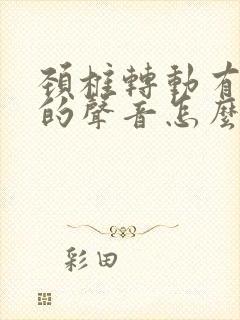 頚椎轉動有
的聲音怎麼
彩田